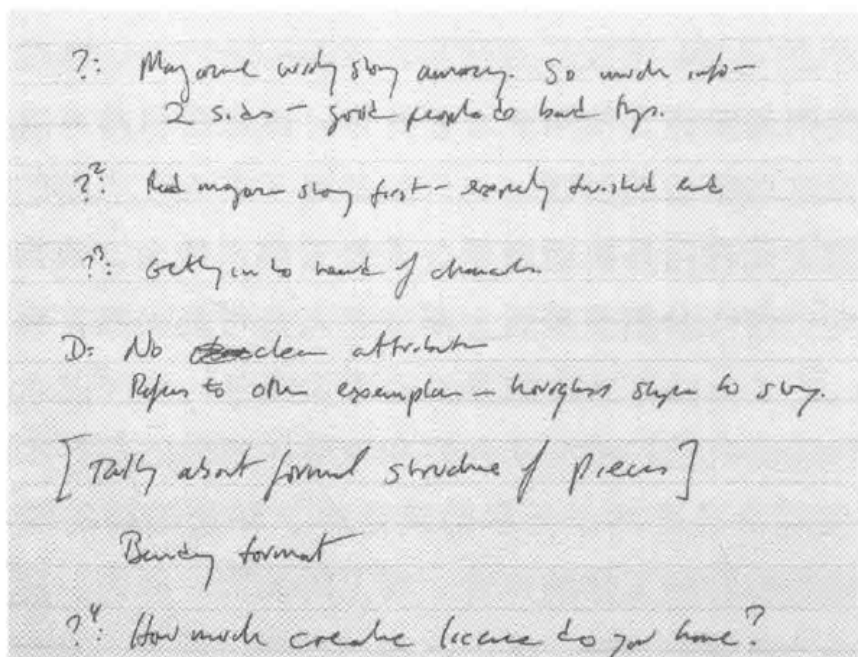 ?: story amazing. So much info –
2 sides – good people do bad things.
?²: Read magazine story first – twisted end
?³: Getting into head of characters.
D: No clear attribution
Refers to other exemplars – hourglass shape to story.
[Talking about formal structure of pieces]
Bending format
?⁴: How much creative license do you have?